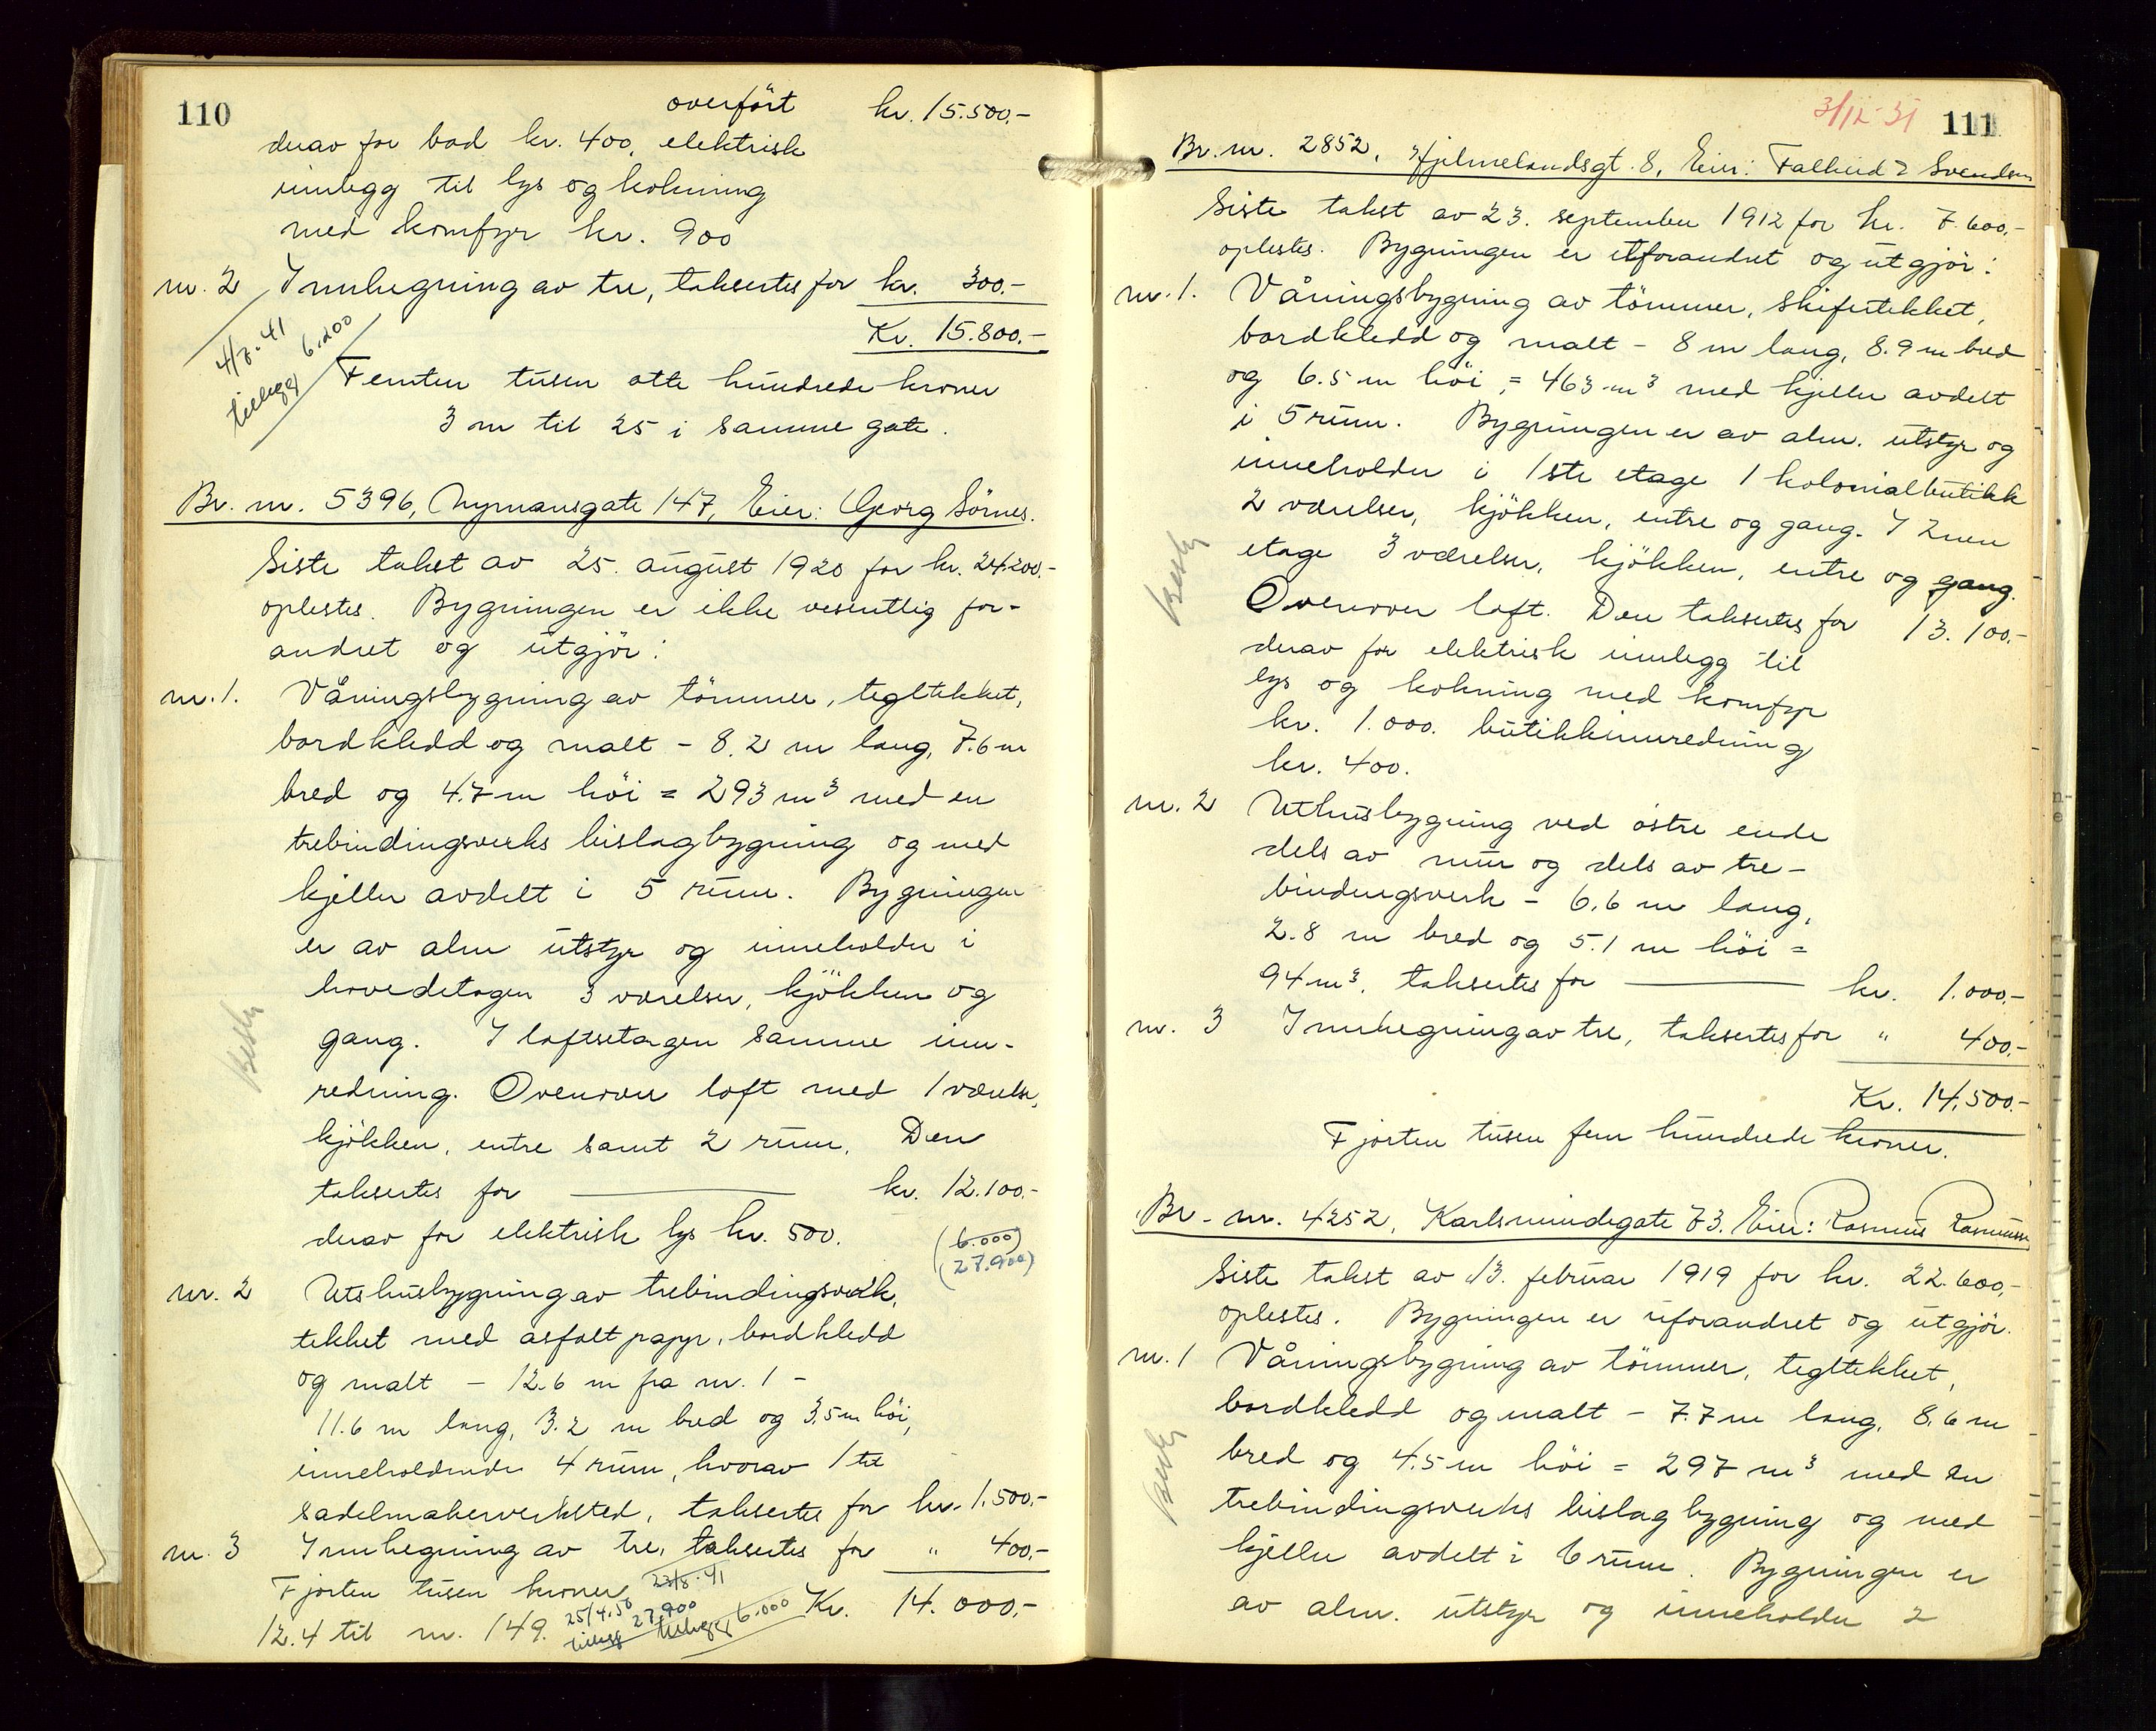 110
overfört kr. 15.500.-
derav for bad kr. 400, elektrisk
innlegg til lys og kokning
med komfyr kr. 900
nr. 2 Innhegning av tre, taksertes for kr. 300.-
Kr. 15.800.-
4/8.41
tillegg 6.200
Femten tusen otte hundrede kroner
3 m til 25 i samme gate.
Br. nr. 5396, Nymansgate 147, Eier: Georg Sörnes.
Siste takst av 25. august 1920 for kr. 24.200.-
oplestes. Bygningen er ikke vesentlig for-
andret og utgjör:
nr. 1. Våningsbygning av tömmer, tegltekket,
bordkledd og malt - 8.2 m lang, 7.6 m
bred og 4.7 m höi = 293 m³ med en
trebindingsverks bislagbygning og med
kjeller avdelt i 5 rum. Bygningen
er av alm utstyr og inneholder i
hovedetagen 3 værelser, kjökken og
gang. I loftsetagen samme inn-
redning. Ovenover loft med 1 værelse,
kjökken, entre samt 2 rum. Den
taksertes for kr. 12.100.-
derav for elektrisk lys kr. 500.
(6.000)
(27.900)
nr. 2 Uthusbygning av trebindingsverk,
tekket med asfaltpapp, bordkledd
og malt - 12.6 m fra nr. 1 -
11.6 m lang, 3.2 m bred og 3.5 m höi,
inneholdende 4 rum, hvorav 1 til
sadelmakerverksted, taksertes for kr. 1.500.-
nr. 3 Innhegning av tre, taksertes for " 400.-
Fjorten tusen kroner 23/8.41
Kr. 14.000.-
12.4 til nr. 149. 25/4.50 27.900 tillegg tillegg 6.000
3/12-31 111
Br. nr. 2852, Hjelmelandsgt. 8, Eier: Svendsen
Siste takst av 23. september 1912 for kr. 7.600.-
oplestes. Bygningen er uforandret og utgjör:
nr. 1. Våningsbygning av tömmer, skifertekket,
bordkledd og malt - 8 m lang, 8.9 m bred
og 6.5 m höi = 463 m³ med kjeller avdelt
i 5 rum. Bygningen er av alm. utstyr og
inneholder i 1ste etage 1 kolonialbutikk
2 værelser, kjökken, entre og gang. I 2nen
etage 3 værelser, kjökken, entre og gang.
Ovenover loft. Den taksertes for 13.100.-
derav for elektrisk innlegg til
lys og kokning med komfyr
kr. 1.000. butikkinnredning
kr. 400.
nr. 2 Uthusbygning ved östre ende
dels av mur og dels av tre-
bindingsverk - 6.6 m lang,
2.8 m bred og 5.1 m höi =
94 m³, taksertes for kr. 1.000.-
nr. 3 Innhegning av tre, taksertes for " 400.-
Kr. 14.500.-
Fjorten tusen fem hundrede kroner.
Br. nr. 4252, Karlsmindegate 73. Eier: Rasmus Rasmussen
Siste takst av 13. februar 1919 for kr. 22.600.-
oplestes. Bygningen er uforandret og utgjör.
nr. 1 Våningsbygning av tömmer, tegltekket,
bordkledd og malt - 7.7 m lang, 8.6 m
bred og 4.5 m höi = 297 m³ med en
trebindingsverks bislagbygning og med
kjeller avdelt i 6 rum. Bygningen er
av alm. utstyr og inneholder 2